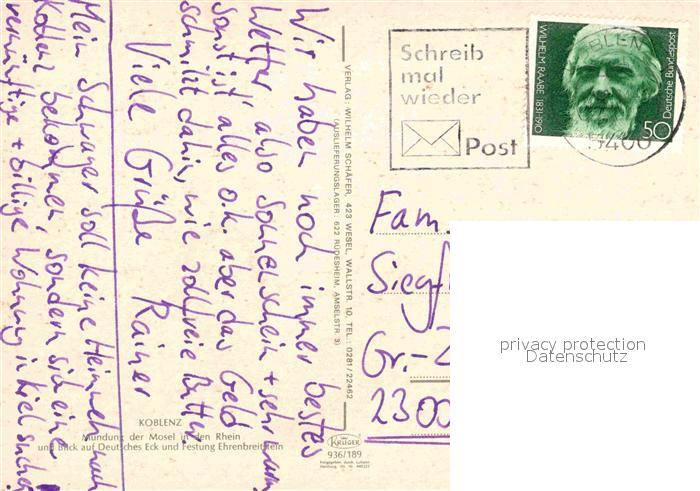 Wir haben noch immer bestes
Wetter, also Sonnenschein + sehr warm
sonst ist alles o.k. aber das Geld
schmilzt dahin, wie zollfreie Butter
Viele Grüße Rainer
Mein Schwager soll keine Heimweh nach
Koblenz bekommen, sondern sich eine
vernünftige + billige Wohnung in Kiel suchen
KOBLENZ
Mündung der Mosel in den Rhein
und Blick auf Deutsches Eck und Festung Ehrenbreitstein
VERLAG: WILHELM SCHÄFER, 423 WESEL, WALLSTR. 10, TEL.: 0281/22462
(AUSLIEFERUNGSLAGER: 622 RÜDESHEIM, AMSELSTR. 3)
KRÜGER
936/189
Schreib
mal
wieder
Post
WILHELM RAABE 1831-1910
Deutsche Bundespost
50
5400
Fam.
Siegf
Gr.-
2300
privacy protection
Datenschutz